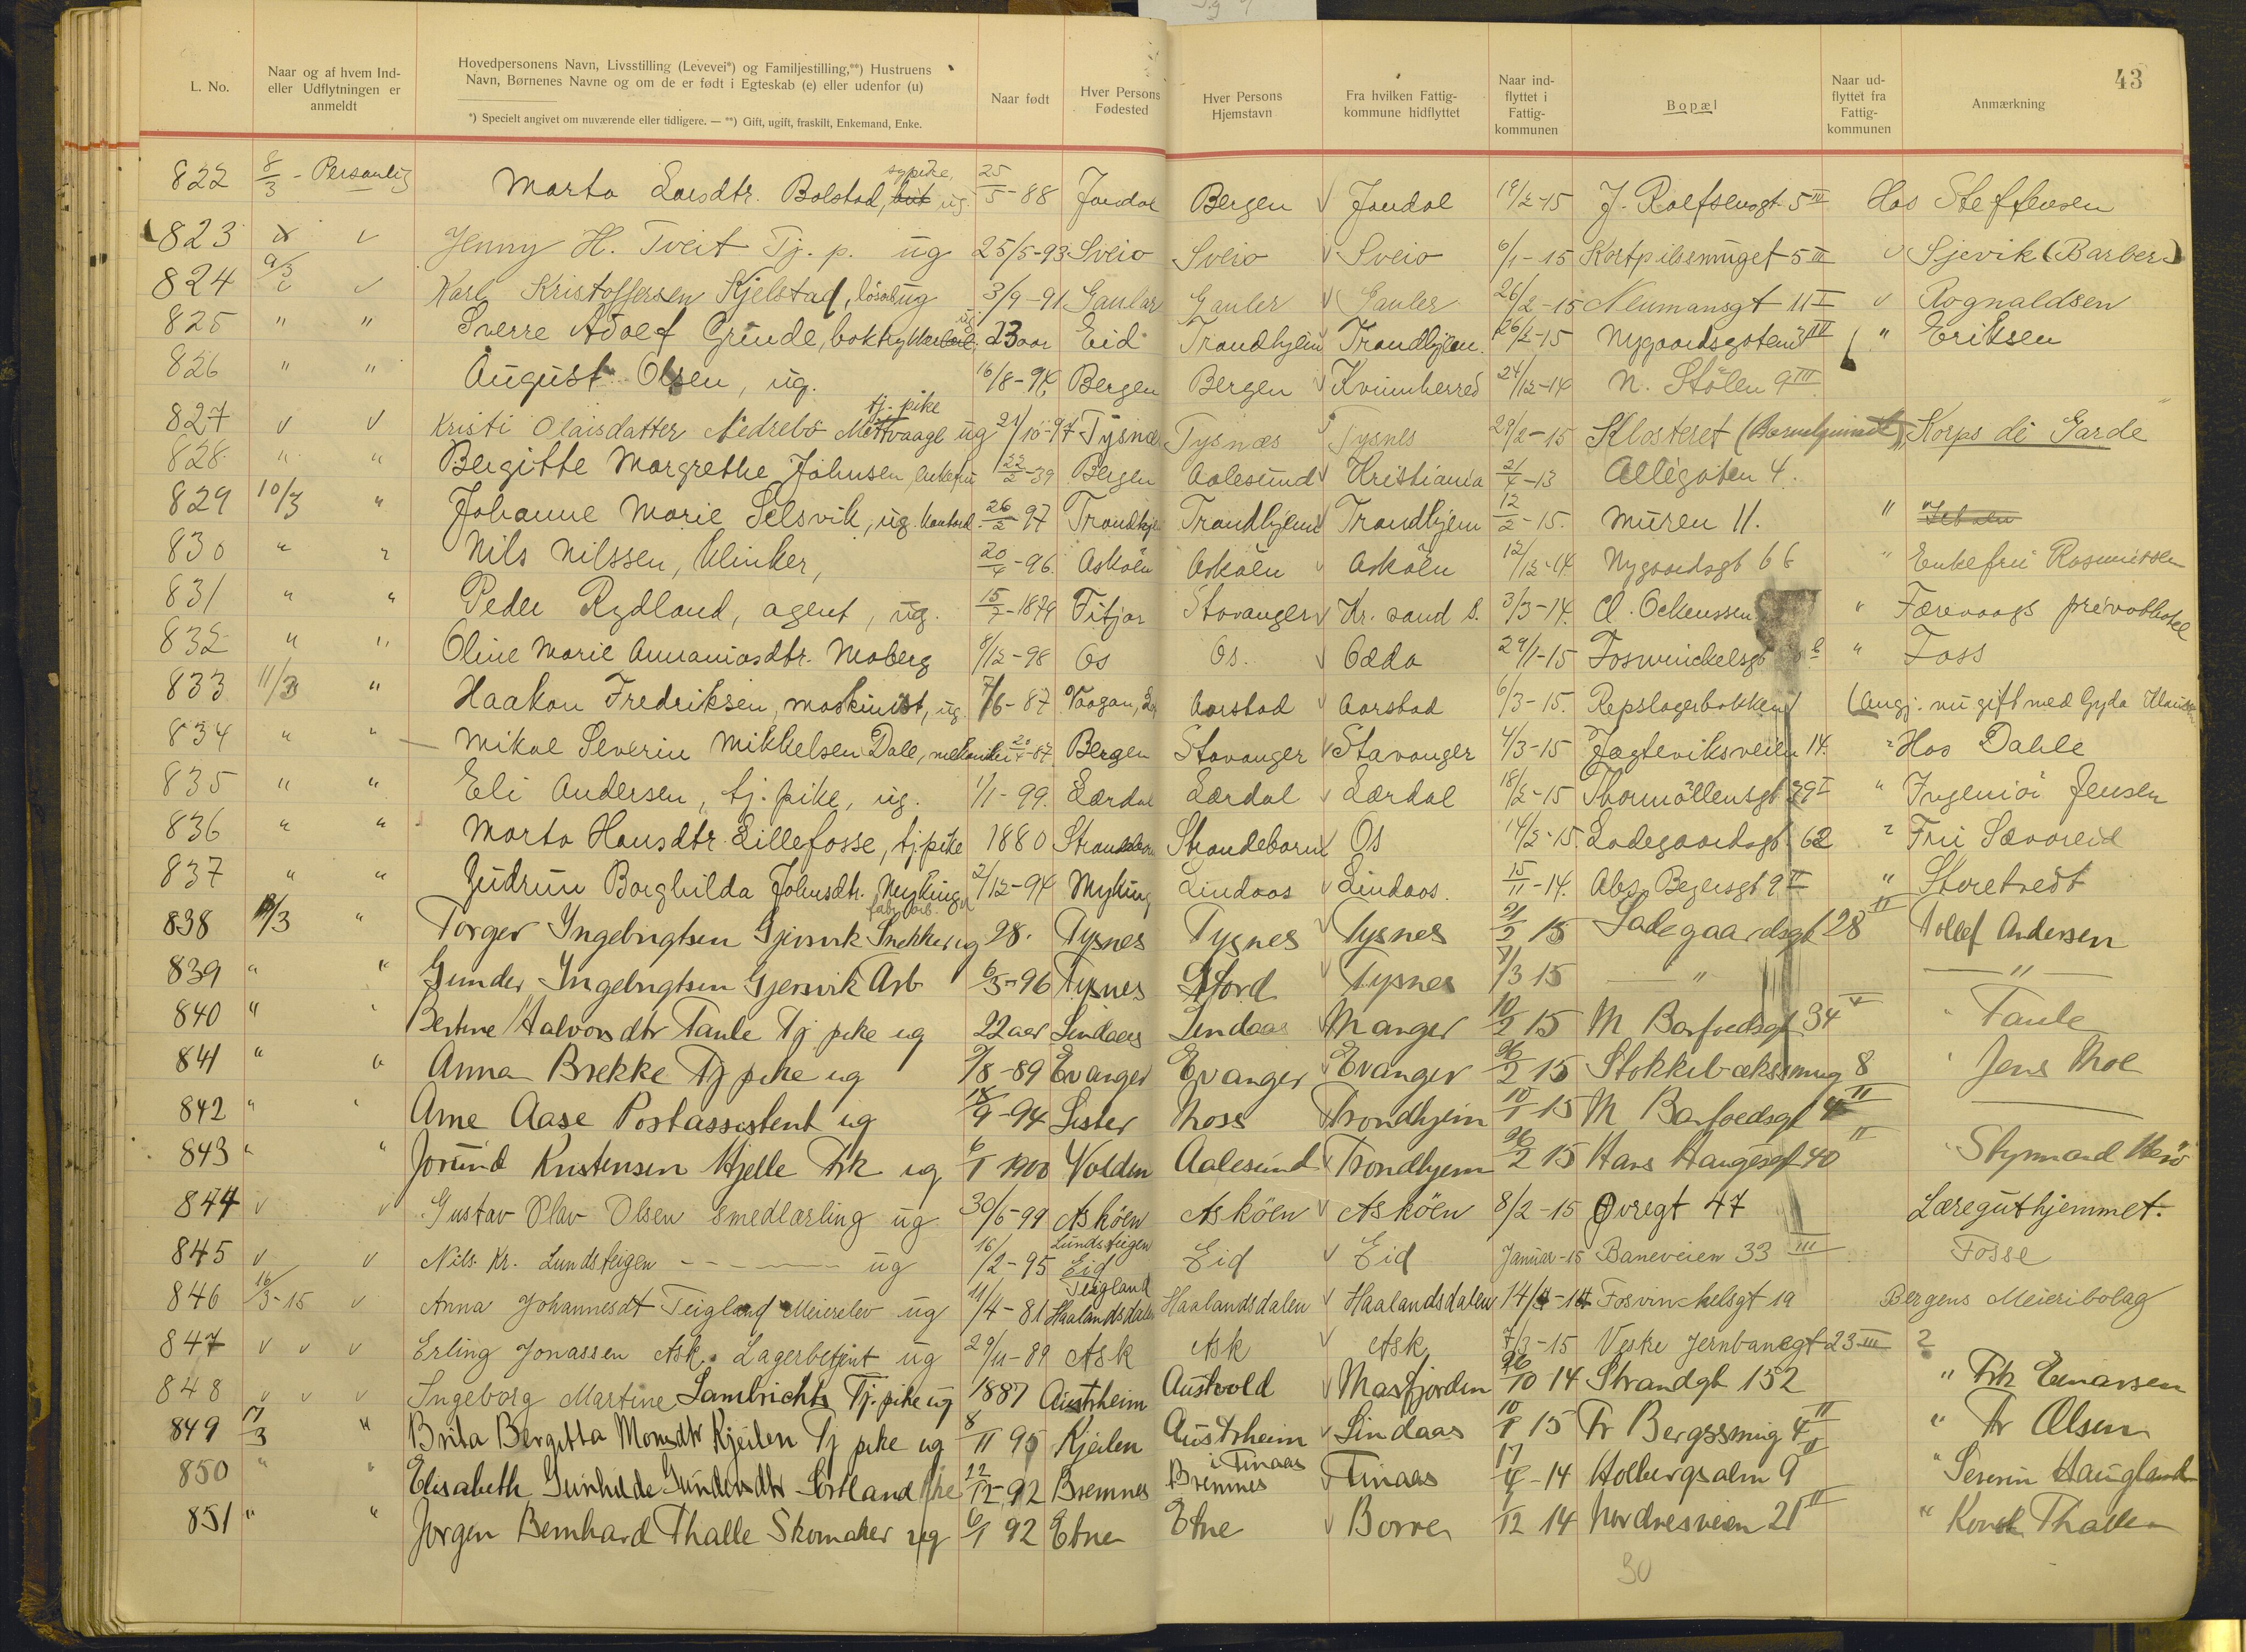 43
L. No.
Naar og af hvem Ind- eller Udflytningen er anmeldt
Hovedpersonens Navn, Livsstilling (Levevei*) og Familjestilling,**) Hustruens Navn, Børnenes Navne og om de er født i Egteskab (e) eller udenfor (u)
*) Specielt angivet om nuværende eller tidligere. — **) Gift, ugift, fraskilt, Enkemand, Enke.
Naar født
Hver Persons Fødested
Hver Persons Hjemstavn
Fra hvilken Fattig- kommune hidflyttet
Naar ind- flyttet i Fattig- kommunen
Bopæl
Naar ud- flyttet fra Fattig- kommunen
Anmærkning
822 8/3 - Personlig Marta Larsdtr. Bolstad, sypike, ug. 25/5-88 Jondal Bergen √ Jondal 18/2-15 J. Rolfsensgt. 5 III Hos Steffensen
823 " √ Jenny H. Tveit Tj. p. ug 25/5-93 Sveio Sveio √ Sveio 6/1-15 Kortpilsmuget 5 III √ Sjevik (Barber)
824 9/3 √ Karl Kristoffersen Kjelstad, ug 3/9-91 Gaular Gauler √ Gauler 26/2-15 Neumansgt 11 I √ Rognaldsen
825 " " Sverre Adolf Grinde, 23 aar Eid Trondhjem Trondhjem 26/2-15 Nygaardsgaten III " Eriksen
826 " " August Olsen, ug. 16/8-94 Bergen Bergen √ Kvinnherred 24/12-14 N. Stölen 9 III
827 √ √ Kristi Olaisdatter Nedrebö tj. pike ug 21/10-97 Tysnæs Tysnæs Tysnes 29/2-15 Klosteret Korps de Garde
828 " " Bergitte Margrethe Johnsen, enkefru 22/2-39 Bergen Aalesund √ Kristiania 21/4-13 Allégaten 4.
829 10/3 " Johanne Marie Selsvik, ug. 26/2-97 Trondhjem Trondhjem √ Trondhjem 12/2-15. Muren 11. "
830 " " Nils Nilssen, Klinker, 20/4-96. Asköen Asköen √ Asköen 12/12-14 Nygaardsgt 66 " Enkefru Rasmussen
831 " " Peder Rydland, agent, ug. 15/7-1879 Fitjar Stavanger √ Kr. sand S. 3/3-14. C. " Færevaags privathotel
832 " " Oline Marie Annaniasdtr. Moberg 8/12-98 Os Os. √ Odda 29/1-15 Foswinckelsgt " Foss
833 11/3 " Haakon Fredriksen, maskinist, ug. 7/6-87 Vaagan, Aarstad Aarstad 6/3-15. Repslagerbakken (Angj. nu gift med Gyda
834 " " Mikal Severin Mikkelsen Dale, mekaniker 20/4-87 Bergen Stavanger √ Stavanger 4/3-15 Jægteviksveien 14. " Hos Dahle
835 " " Eli Andersen, tj. pike, ug. 1/1-99. Lærdal Lærdal √ Lærdal 18/2-15 Thormöllensgt 39 I " Ingeniör Jensen
836 " " Marta Hansdtr. Lillefosse, tj. pike 1880 Strandebarm Strandebarm √ Os 14/2-15. Ladegaardsgt. 62 " Fru Sævareid
837 " " Gudrun Borghilda Johnsdtr. Myking 2/12-94 Myking Lindaas √ Lindaas. 15/11-14. Abs. Beyersgt 9 II " Storetvedt
838 12/3 " Torger Ingebrigtsen Gjersvik Snekker ug 28. Tysnes Tysnes √ Tysnes 21/2 15 Ladegaardsgt 28 II Tollef Andersen
839 " " Gunder Ingebrigtsen Gjersvik Arb 6/3-96 Tysnes Stord √ Tysnes 7/3 15 — " — — " —
840 " " Bertine Halvorsdtr Taule Tj pike ug 22 aar Lindaas Lindaas √ Manger 10/2 15 M Barfoedsgt 34 " Taule
841 " " Anna Brekke Tj pike ug 9/8-89 Evanger Evanger √ Evanger 26/2 15 Stokkebæksmug 8 " Jens Moe
842 " " Arne Aase Postassistent ug 18/9-94 Lister Moss √ Trondhjem 10/1 15 M Barfoedsgt 4 II
843 " " Jorund Kristensen Hjelle Frk ug 6/1 1900 Volden Aalesund √ Trondhjem 26/2 15 Hans Haugesgt 40 II "
844 √ √ Gustav Olav Olsen smedlærling ug 30/5-99 Asköen Asköen √ Asköen 8/2-15 Øvregt 47 Læreguthjemmet.
845 √ √ Nils. Kr. Lundsteigen - - - ug 16/2-95 Lundsteigen Eid Eid √ Eid Januar-15 Baneveien 33 III Fosse
846 16/3-15 √ Anna Johannesdt Teigland Meierelev ug 11/4-81 Teigland Haalandsdalen Haalandsdalen √ Haalandsdalen 14/4-14 Fosvinckelsgt 19 Bergens Meieribolag
847 √ √ √ Erling Jonassen Ask. Lagerbetjent ug 29/11-89 Ask Ask √ Ask 7/3-15 Vestre Jernbanegt 23 III ?
848 √ √ √ Ingeborg Martine Lambrichts Tj. pike ug 1887 Austrheim Austvold √ Masfjorden 26/10 14 Strandgt 152 " Frk Einarsen
849 17/3 " Brita Bergitta Monsdtr Kjeilen Tj pike ug 8/11 95 Kjeilen Austrheim √ Lindaas 10/1 15 Fr Bergssmug 4 II " Fr Olsen
850 " " Elisabeth Gunhilde Gundersdtr Sortland 12/12-92 Bremnes Bremnes i Finaas √ Finaas 17/4-14 Holbergsalm 9 II " Severin Haugland
851 " " Jorgen Bernhard Thalle Skomaker ug 6/1 92 Etne Etne √ Borre 1/12 14 Nordnesveien 21 II " Thalle
30